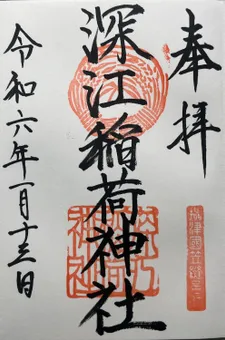 奉拝
深江稲荷神社
令和六年一月十三日